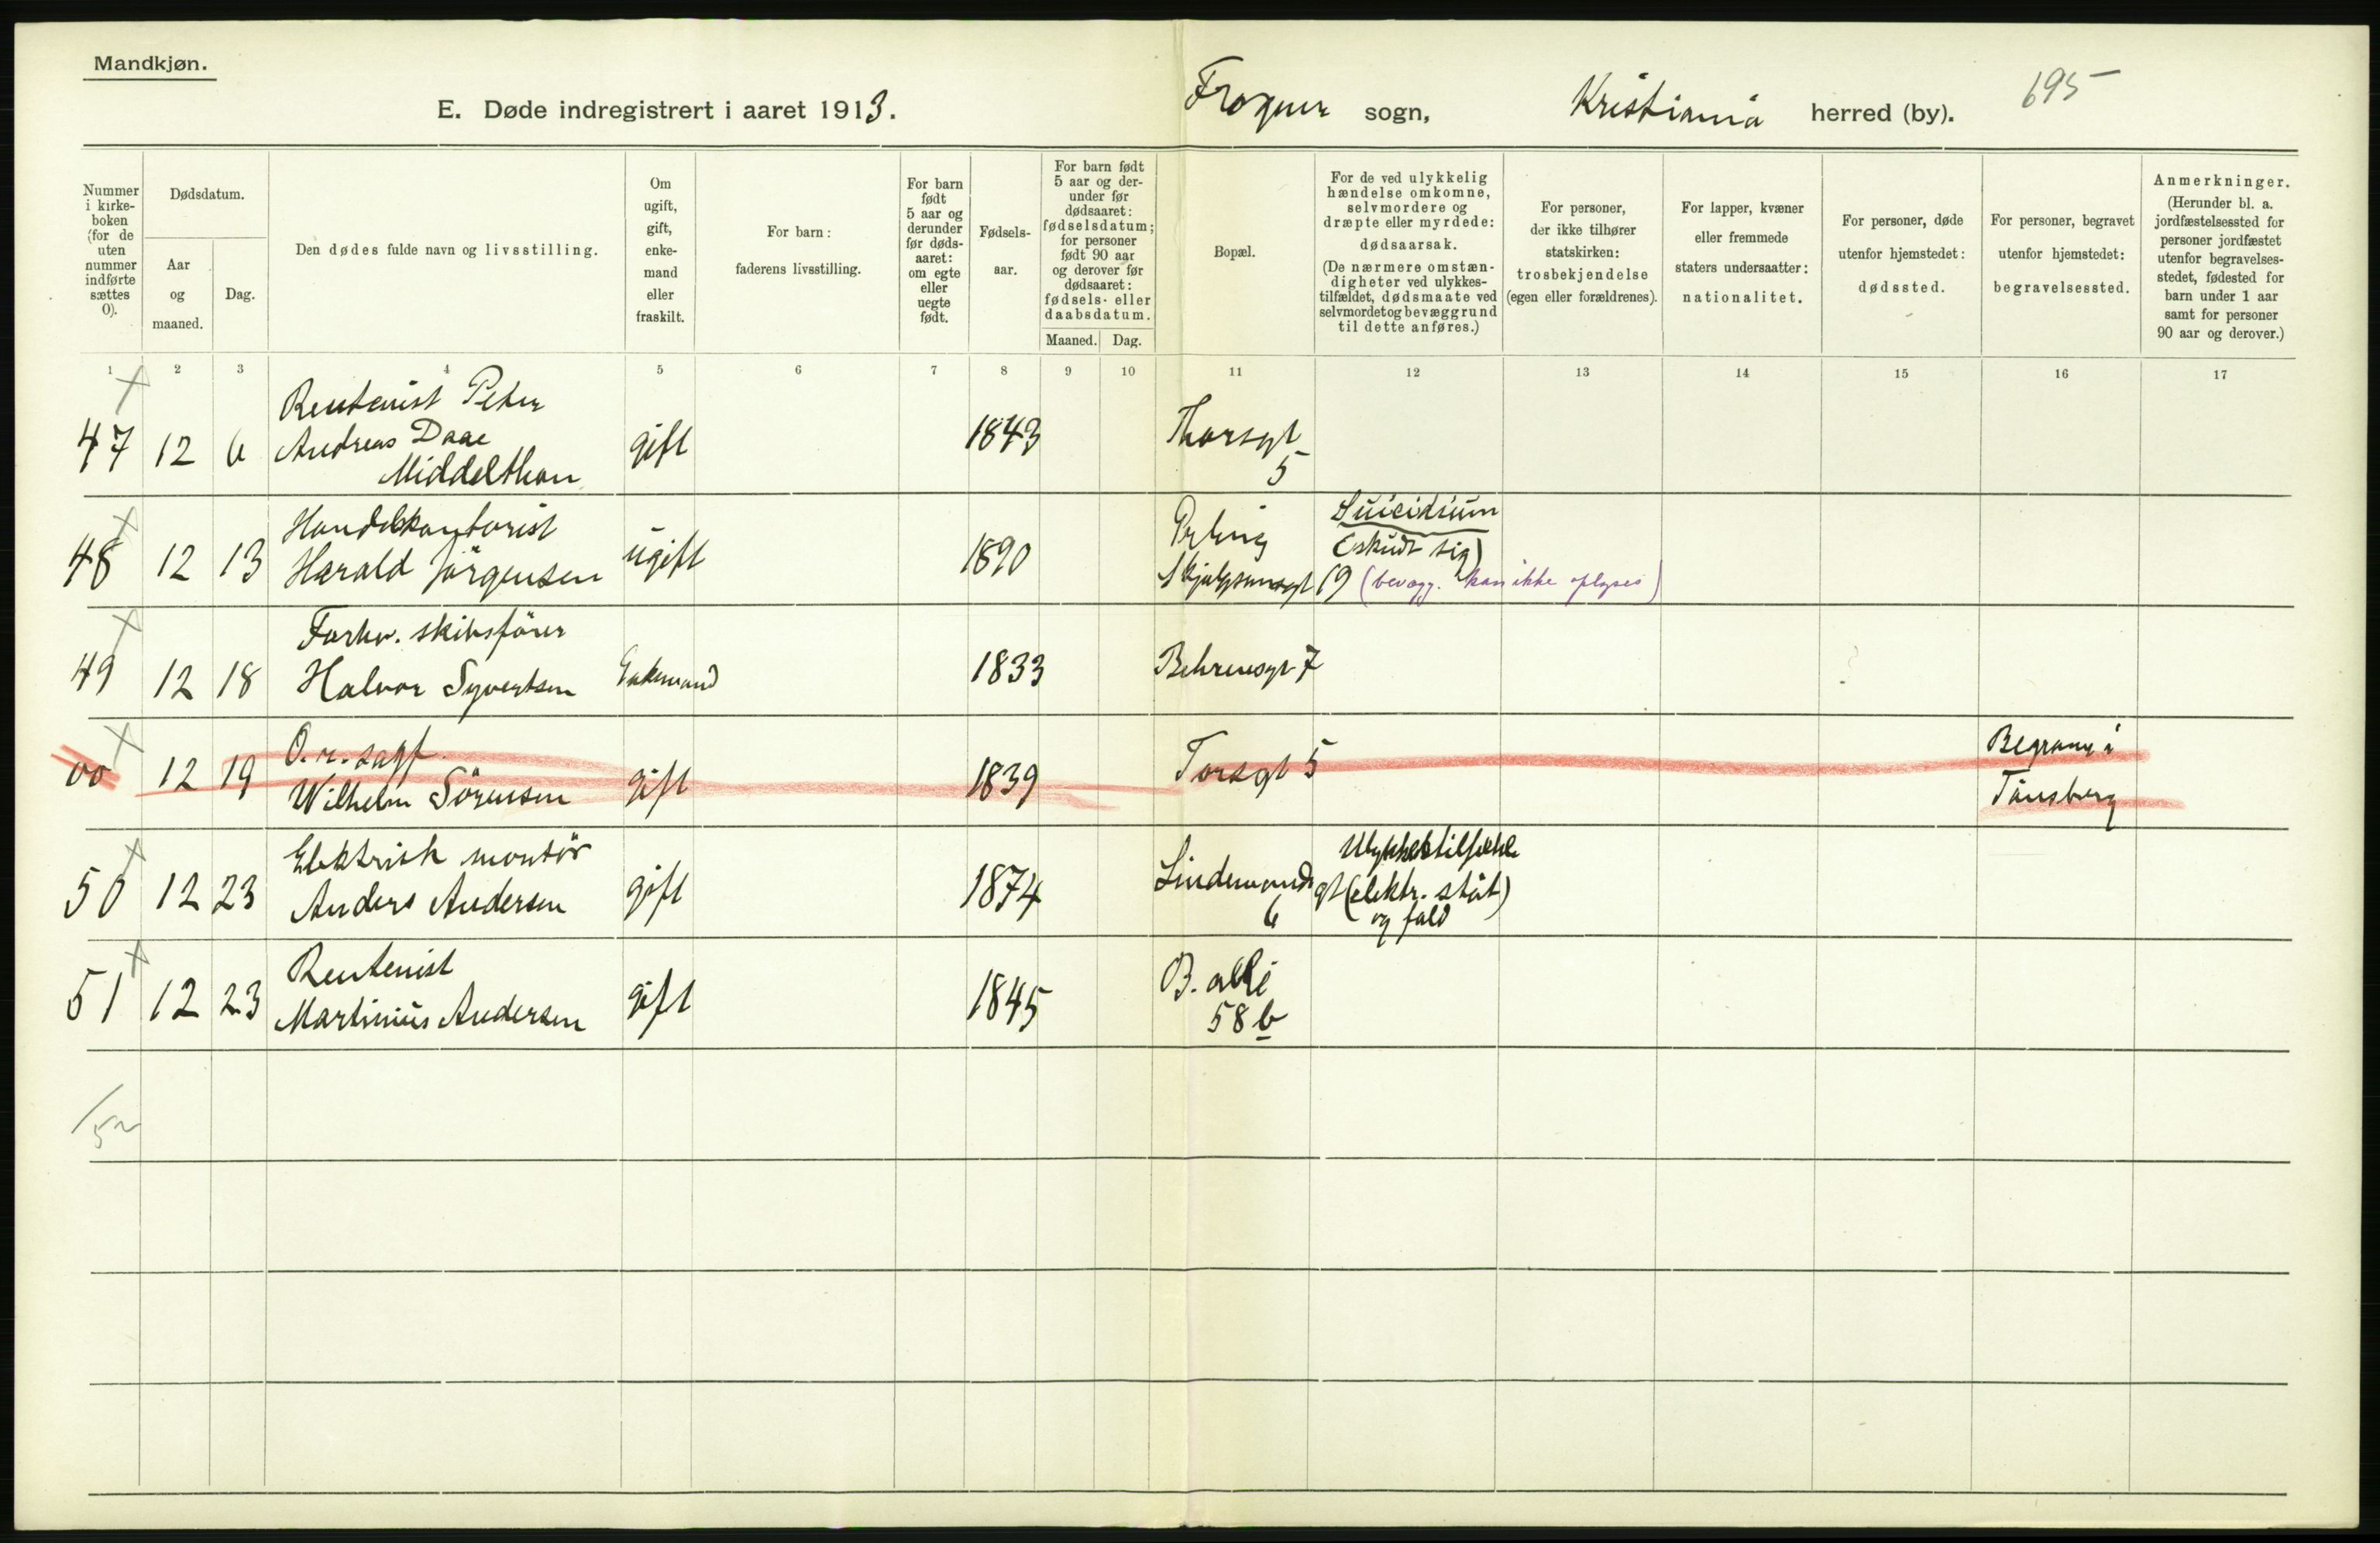 Mandkjøn.
E. Døde indregistrert i aaret 1913.
Frogner sogn,
Kristiania herred (by).
695
Nummer i kirke-boken (for de uten nummer indførte sættes 0).
Dødsdatum.
Aar og maaned.
Dag.
Den dødes fulde navn og livsstilling.
Om ugift, gift, enke-mand eller fraskilt.
For barn: faderens livsstilling.
For barn født 5 aar og derunder før døds-aaret: om egte eller uegte født.
Fødsels-aar.
For barn født 5 aar og der-under før dødsaaret: fødselsdatum; for personer født 90 aar og derover før dødsaaret: fødsels- eller daabsdatum.
Maaned.
Dag.
Bopæl.
For de ved ulykkelig hændelse omkomne, selvmordere og dræpte eller myrdede: dødsaarsak. (De nærmere omstæn-digheter ved ulykkes-tilfældet, dødsmaate ved selvmordet og bevæggrund til dette anføres.)
For personer, der ikke tilhører statskirken: trosbekjendelse (egen eller forældrenes).
For lapper, kvæner eller fremmede staters undersaatter: nationalitet.
For personer, døde utenfor hjemstedet: dødssted.
For personer, begravet utenfor hjemstedet: begravelsessted.
Anmerkninger. (Herunder bl. a. jordfæstelsessted for personer jordfæstet utenfor begravelses-stedet, fødested for barn under 1 aar samt for personer 90 aar og derover.)
1 2 3 4 5 6 7 8 9 10 11 12 13 14 15 16 17
Rentenist Peter
47 12 6 Andreas Daae gift 1843 Thorsgt
Middelthon 5
Handelskontorist Suicidium
48 12 13 Harald Jörgensen ugift 1890 Erling (skudt sig)
Skjalgsønsgt 19 (bevægg. kan ikke oplyses)
Forhv. skibsförer
49 12 18 Halvor Syvertsen Enkemand 1833 Behrensgt 7
O.r.sagf. Begravet i
00 12 19 Wilhelm Sörensen gift 1839 Torsgt 5 Tönsberg
Elektrisk montör Ulykkestilfælde
50 12 23 Anders Andersen gift 1874 Lindemands gt (elektr. støt)
6 og fald
Rentenist
51 12 23 Martinius Andersen gift 1845 B. allé
58 b
52